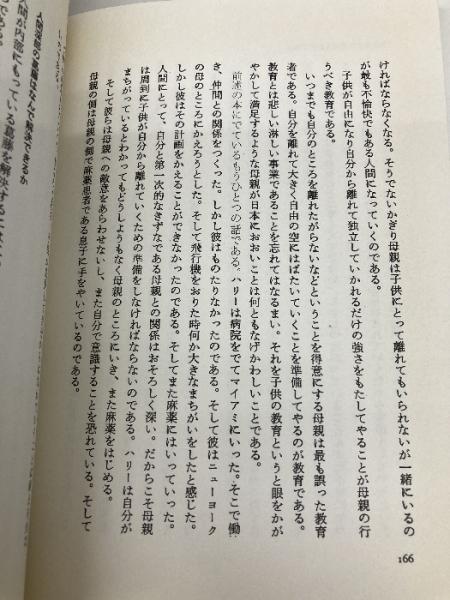 ければならなくなる。そうでないかぎり母親は子供にとって離れてもいられないが一緒にいるの
が最も不愉快でもある人間になっていくのである。
子供が自由になり自分から離れて独立していかれるだけの強さをもたしてやることが母親の行
うべき教育である。
いつまでも自分のところを離れたがらないなどということを得意にする母親は最も誤った教育
者である。自分を離れて大きく自由の空にはばたいていくことを準備してやるのが教育である。
教育とは悲しい淋しい事業であることを忘れてはなるまい。それを子供の教育というと眼をかが
やかして満足するような母親が日本におおいことは何ともなげかわしいことである。
前述の本にでているもうひとつの話である。ハリーは病院をでてマイアミにいった。そこで働
き、仲間との関係をつくった。しかし彼はものたりなかったのである。そして彼はニューヨーク
の母のところにかえろうとした。そして飛行機をおりた時何か大きなまちがいをしたと感じた。
しかし彼はその計画をかえることができなかったのである。そしてまた麻薬にはいっていった。
人間にとって、自分と第一次的なきずなである母親との関係はおそろしく深い。だからこそ母親
は周到に子供が自分から離れていくための準備をしなければならないのである。ハリーは自分が
まちがっているとわかってもどうしようもなく母親のところにいき、また麻薬をはじめる。
そして彼らは母親への敵意をあらわせないし、また自分で意識することを恐れている。そして
母親の側は母親の側で麻薬患者である息子に手をやいているのである。
166
人間遍歴の意識はなんで解決できるか
人間が内部にもっている葛藤を解決するにはい
である。